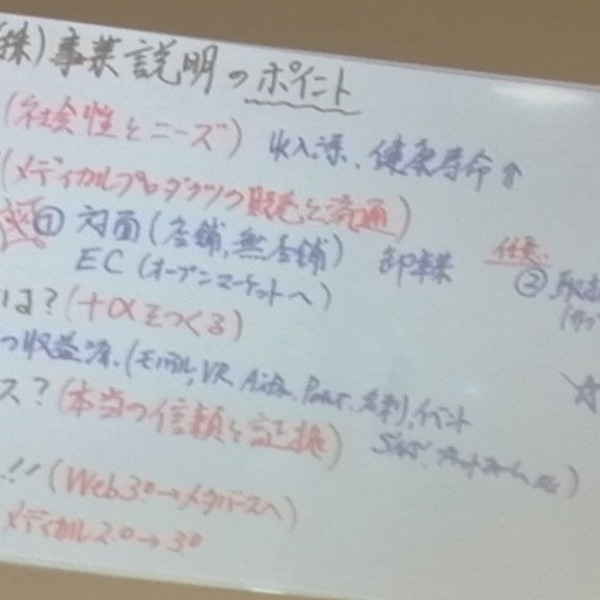 (株)事業説明のポイント
(社会性とニーズ) 収入源、健康寿命↑
(メディカルプロダクツの販売と流通)
① 対面(店舗,無店舗) 卸事業 任意.
EC (オープンマーケットへ) ②
は?(+αをつくる)
の収益源.(モバイル,VR, イベント
ス?(本当の信頼と証拠) SNS.プラットフォーム,etc)
!!(Web3.0→メタバースへ)
メディカル2.0→3.0